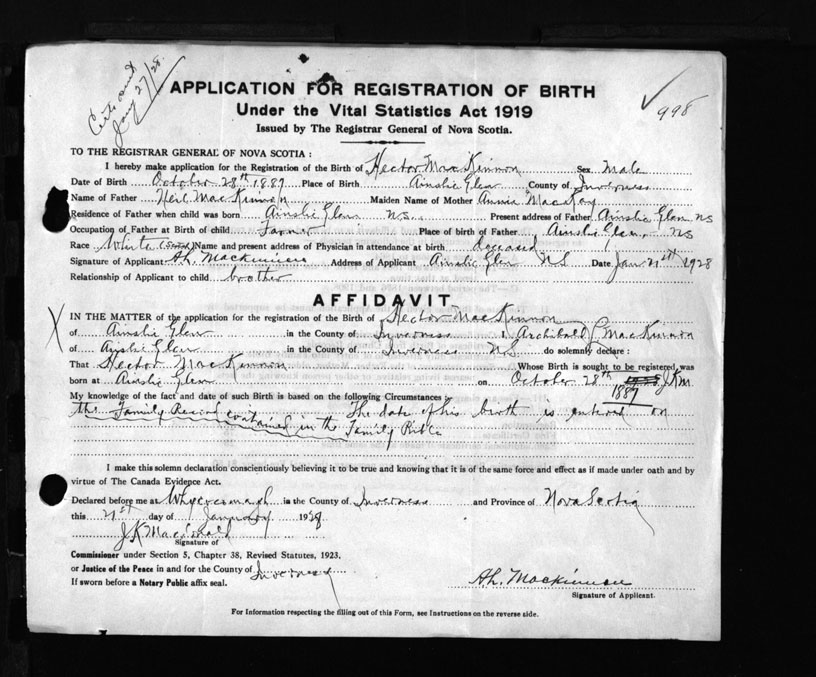 Certs and
Jany 27/28.
998
APPLICATION FOR REGISTRATION OF BIRTH
Under the Vital Statistics Act 1919
Issued by The Registrar General of Nova Scotia.
TO THE REGISTRAR GENERAL OF NOVA SCOTIA :
I hereby make application for the Registration of the Birth of Hector MacKinnon Sex Male
Date of Birth October 28th 1889 Place of Birth Ainslie Glen County of Inverness
Name of Father Neil MacKinnon Maiden Name of Mother Annie MacKay
Residence of Father when child was born Ainslie Glen N.S. Present address of Father Ainslie Glen NS
Occupation of Father at Birth of child Farmer Place of birth of Father Ainslie Glen, NS
Race White (Scotch) Name and present address of Physician in attendance at birth deceased
Signature of Applicant Ah. Mackinnon Address of Applicant Ainslie Glen NS Date Jan 21st 1928
Relationship of Applicant to child brother
AFFIDAVIT
IN THE MATTER of the application for the registration of the Birth of Hector MacKinnon
of Ainslie Glen in the County of Inverness I, Archibald MacKinnon
of Ainslie Glen in the County of Inverness N.S. do solemnly declare :
That Hector MacKinnon Whose Birth is sought to be registered was
born at Ainslie Glen on October 28th J.K.M.
1889
My knowledge of the fact and date of such Birth is based on the following Circumstances :
the Family Record contained in the Family Bible The date of his birth is entered on
I make this solemn declaration conscientiously believing it to be true and knowing that it is of the same force and effect as if made under oath and by
virtue of The Canada Evidence Act.
Declared before me at Whycocomagh in the County of Inverness and Province of Nova Scotia
this 21st day of January 1928
J.K. MacDonald
Signature of
Commissioner under Section 5, Chapter 38, Revised Statutes, 1923.
or Justice of the Peace in and for the County of Inverness
If sworn before a Notary Public affix seal.
Ah. Mackinnon
Signature of Applicant.
For Information respecting the filling out of this Form, see Instructions on the reverse side.